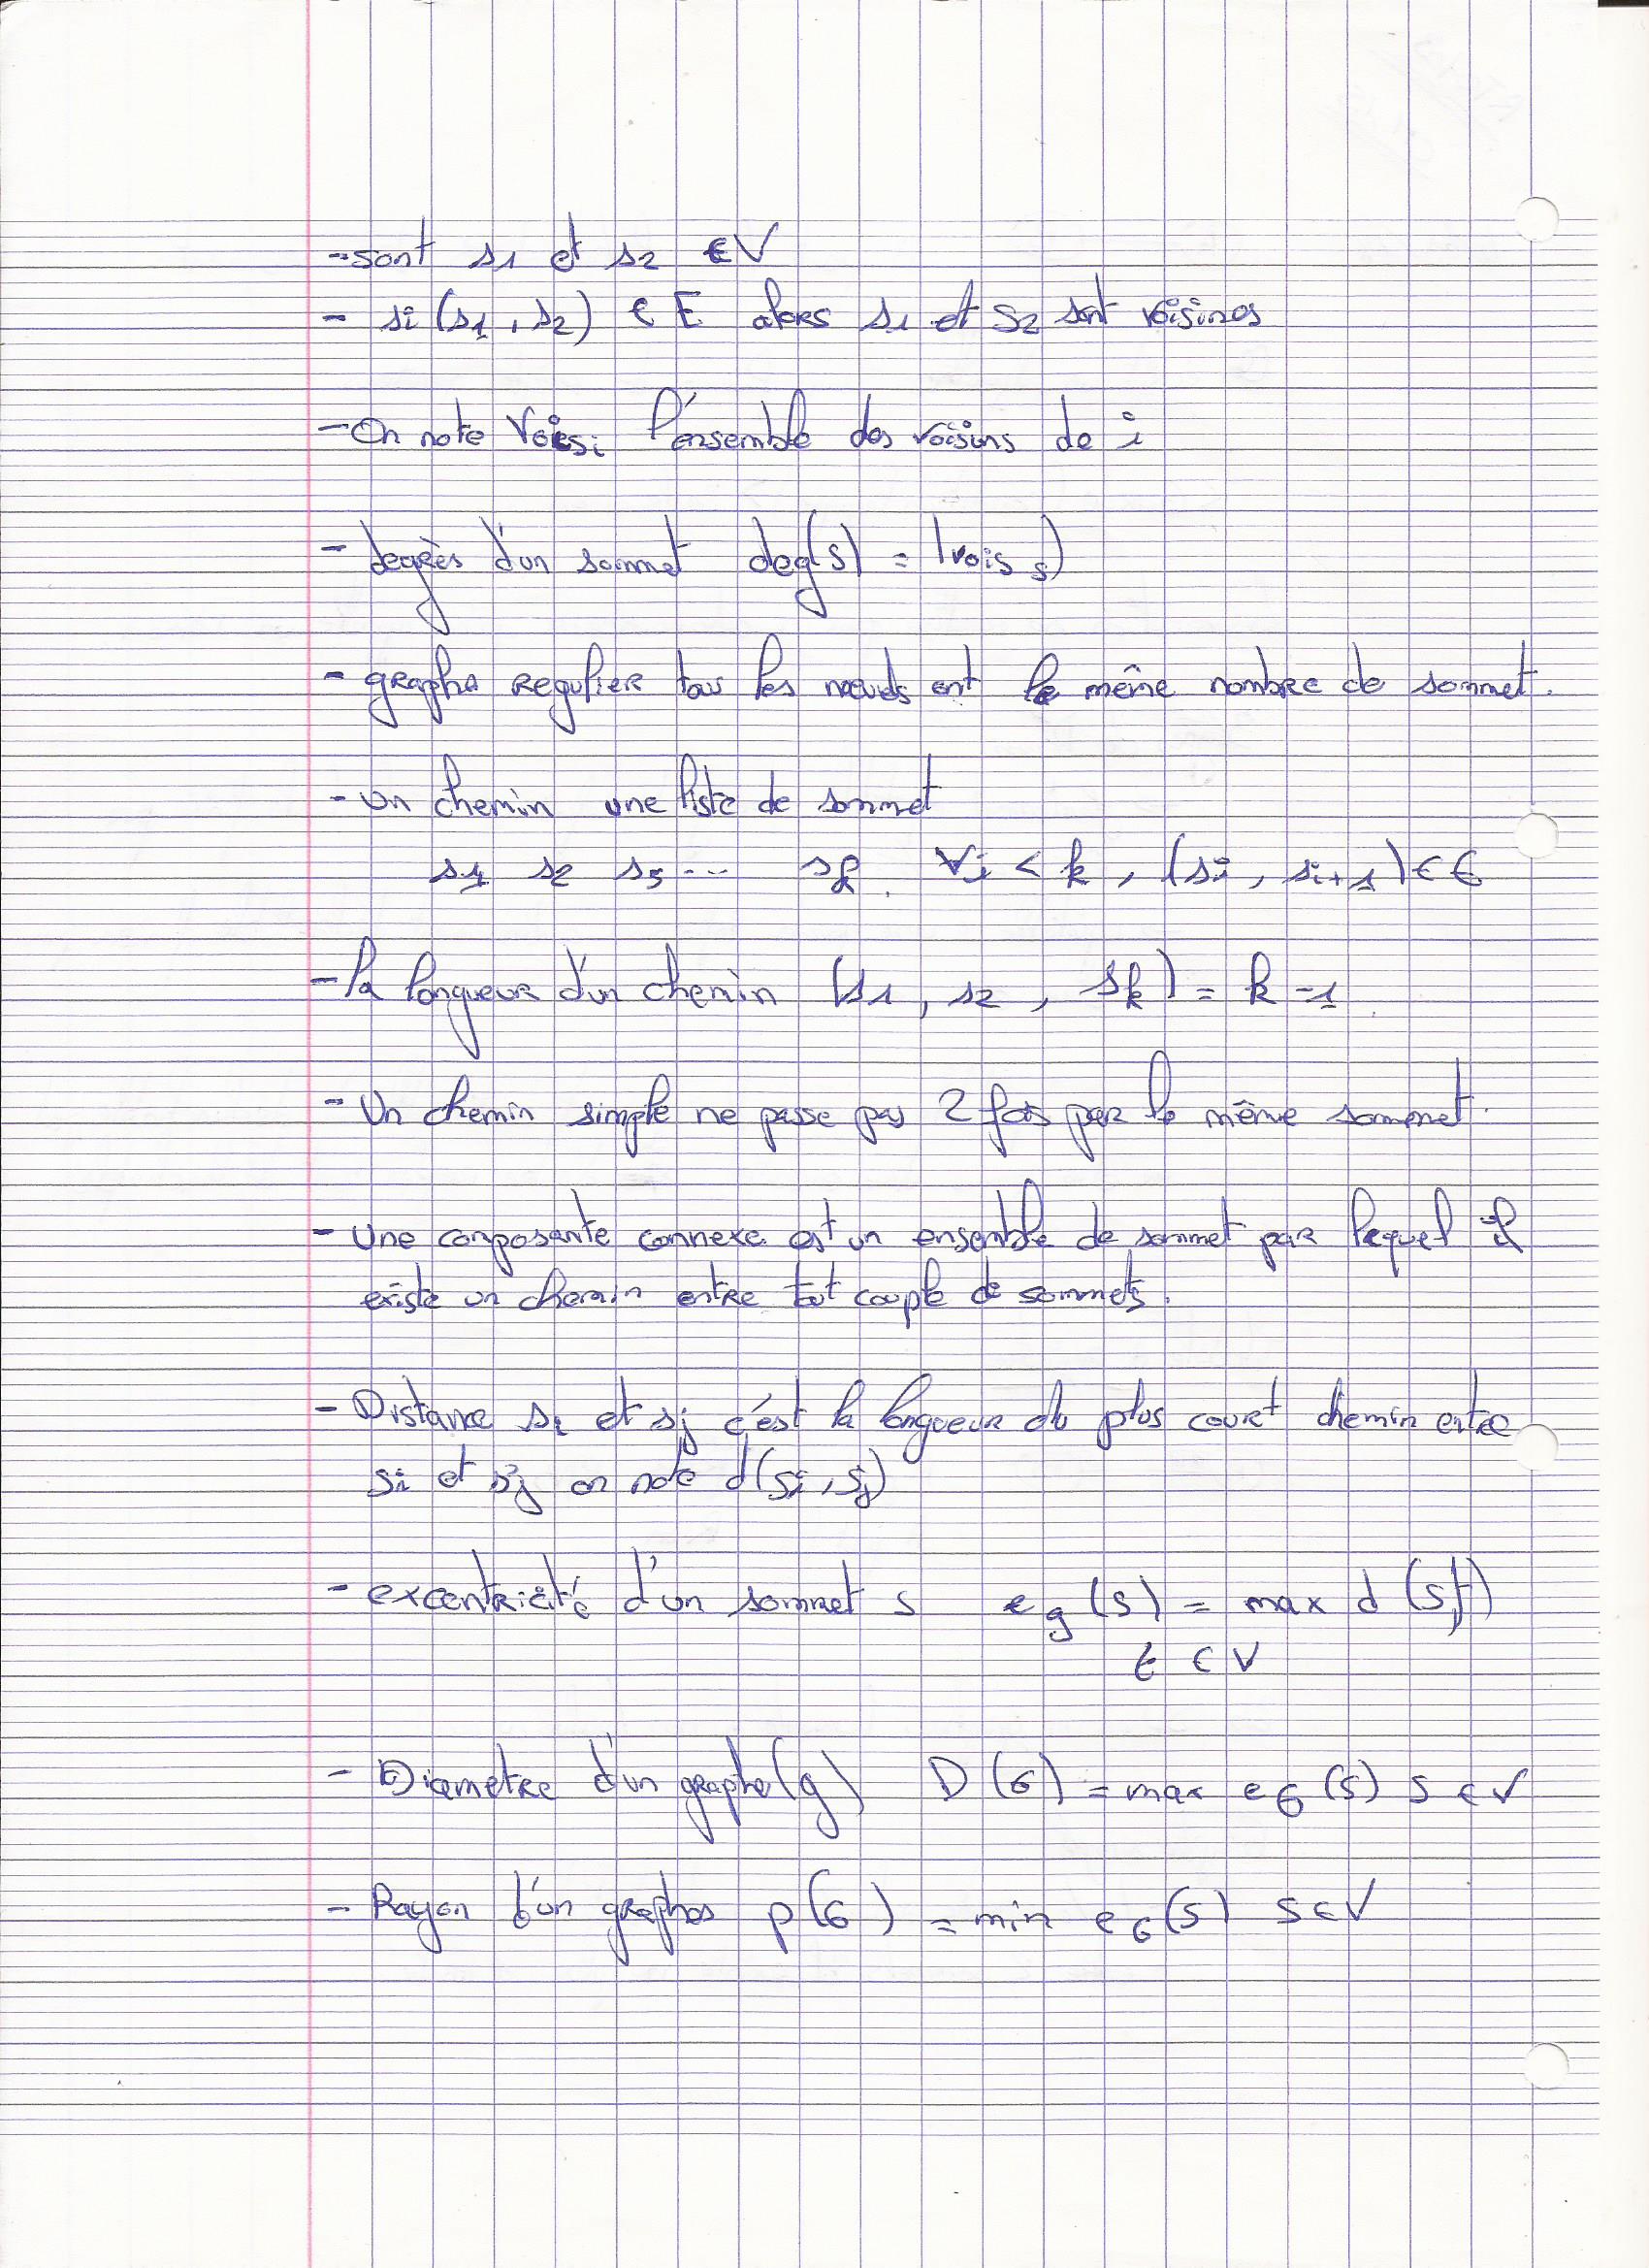 - sont s1 et s2 ∈ V
- si (s1, s2) ∈ E alors s1 et s2 sont voisines
- On note Voisi l'ensemble des voisins de i
- degrès d'un sommet deg(s) = |vois s)
- graphe regulier tous les nœuds ont le même nombre de sommet.
- un chemin une liste de sommet
s1 s2 s3 ... sk. ∀i < k, (si, si+1) ∈ E
- la longueur d'un chemin (s1, s2, sk) = k - 1
- Un chemin simple ne passe pas 2 fois par le même sommet.
- Une composante connexe est un ensemble de sommet par lequel il
existe un chemin entre tout couple de sommets.
- Distance si et sj c'est la longueur du plus court chemin entre
si et sj on note d(si, sj)
- excentricité d'un sommet s eg(s) = max d(s,t)
t ∈ V
- Diametre d'un graphe (g) D(G) = max eG(s) s ∈ V
- Rayon d'un graphes p(G) = min eG(s) s ∈ V